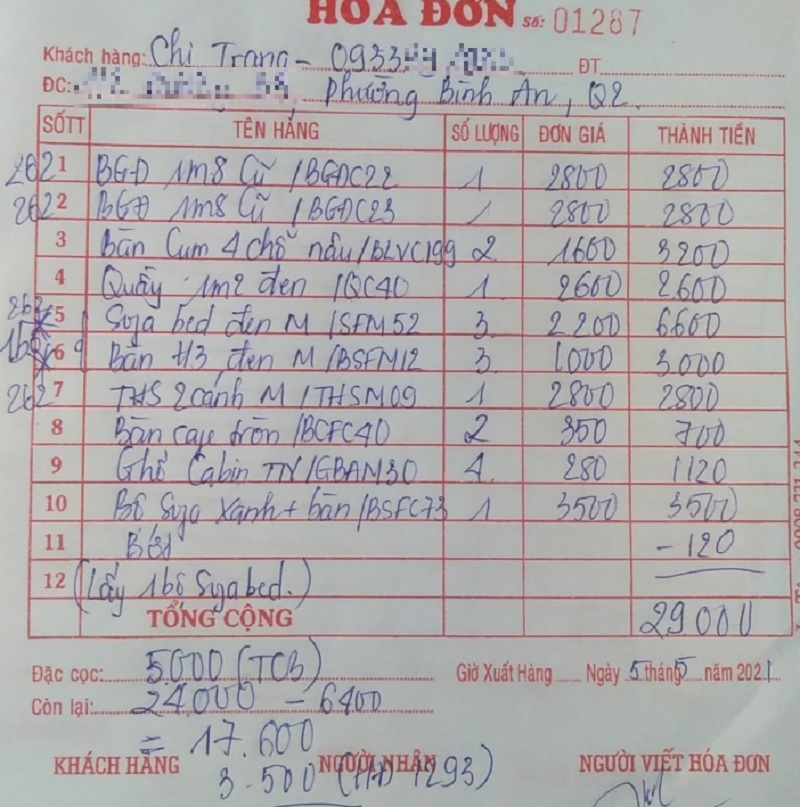 HÓA ĐƠN Số: 01287
Khách hàng: Chi Trang - 0933 ĐT
ĐC: phường Bình An, Q2.
SỐTT TÊN HÀNG SỐ LƯỢNG ĐƠN GIÁ THÀNH TIỀN
2621 BGĐ 1m8 Cũ /BGĐC22 1 2800 2800
2622 BGĐ 1m8 Cũ /BGĐC23 1 2800 2800
3 Bàn Cum 4 chỗ nâu /BLVC199 2 1600 3200
4 Quầy 1m2 đen /QC40 1 2600 2.600
5 Soya bed đen M /SFM52 3 2200 6600
6 Bàn H3 đen M /BSFM12 3 1000 3.000
2627 THS 2 cánh M /THSM09 1 2800 2800
8 Bàn caje tròn /BCFC40 2 350 700
9 Ghế Cabin TN /GBAM30 4 280 1120
10 Bộ Soya xanh + bàn /BSFC73 1 3500 3500
11 Bớt - 120
12 (Lấy 1 bộ Soya bed.)
TỔNG CỘNG 29000
Đặc cọc: 5.000 (TCB) Giờ Xuất Hàng Ngày 5 tháng 5 năm 2021
Còn lại: 24.000 - 6400
= 17.600
KHÁCH HÀNG NGƯỜI NHẬN NGƯỜI VIẾT HÓA ĐƠN
3.500 (HĐ 1293)